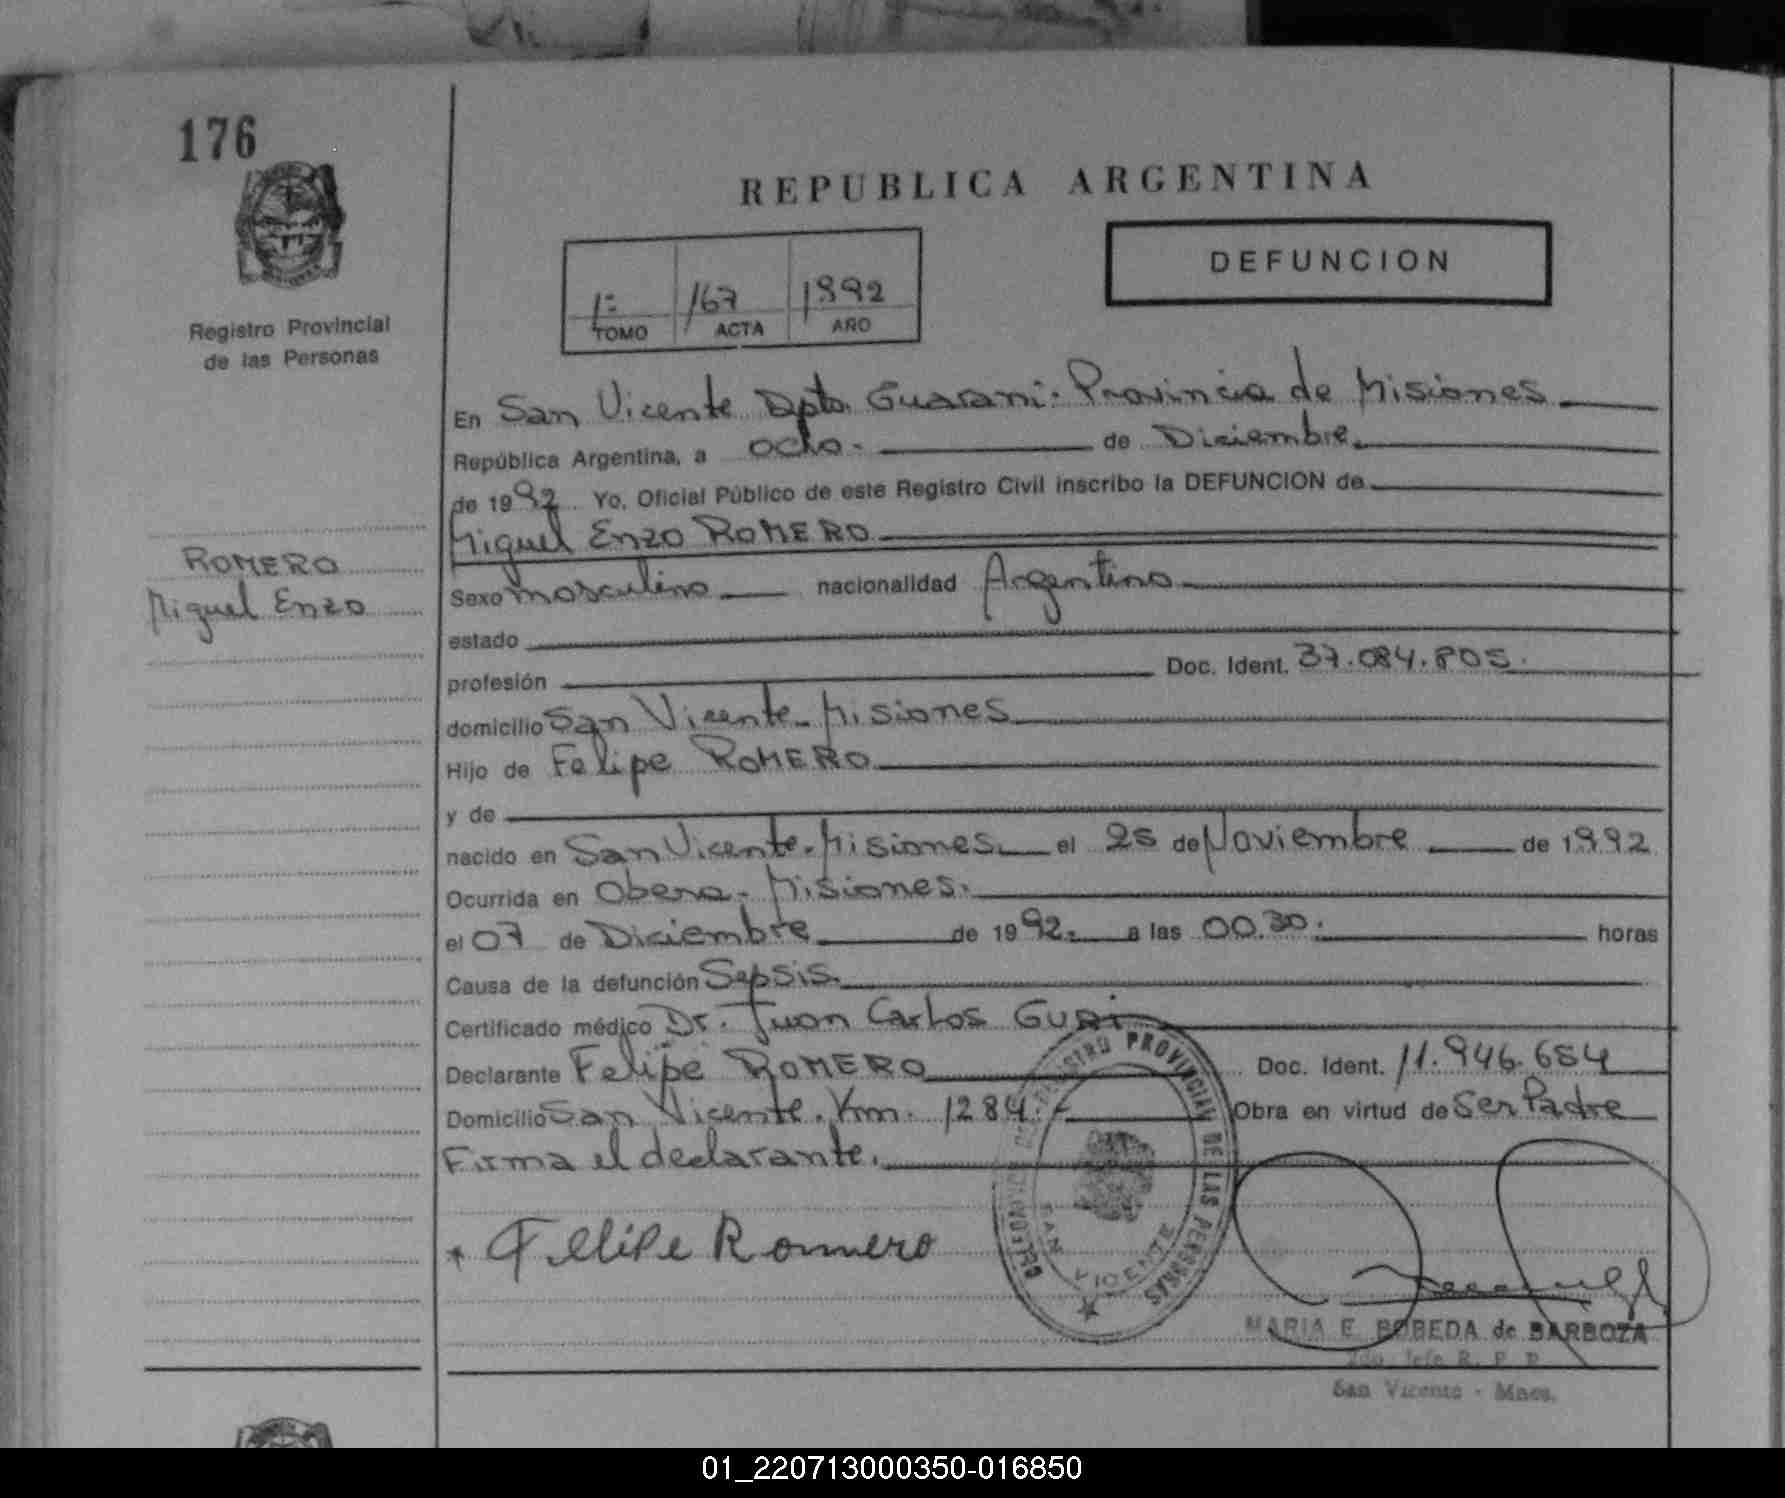 176
REPUBLICA ARGENTINA
DEFUNCION
1º 167 1992
TOMO ACTA AÑO
Registro Provincial
de las Personas
En San Vicente Dpto. Guarani. Provincia de Misiones
República Argentina, a ocho. de Diciembre.
de 1992. Yo, Oficial Público de este Registro Civil inscribo la DEFUNCION de
Miguel Enzo ROMERO
ROMERO
Miguel Enzo
Sexo masculino nacionalidad Argentino
estado
profesión Doc. Ident. 37.084.805.
domicilio San Vicente. Misiones
Hijo de Felipe ROMERO
y de
nacido en San Vicente. Misiones. el 25 de Noviembre de 1992
Ocurrida en Obera. Misiones.
el 07 de Diciembre de 1992. a las 00.30. horas
Causa de la defunción Sepsis.
Certificado médico Dr. Juan Carlos
Declarante Felipe ROMERO Doc. Ident. 11.946.654
Domicilio San Vicente. Km. 1284.- Obra en virtud de Ser Padre
Firma el declarante.
REGISTRO PROVINCIAL DE LAS PERSONAS
SAN VICENTE
* Felipe Romero
MARIA E. BOBEDA de BARBOZA
2do. Jefe R. P. P.
San Vicente - Mnes.
01_220713000350-016850